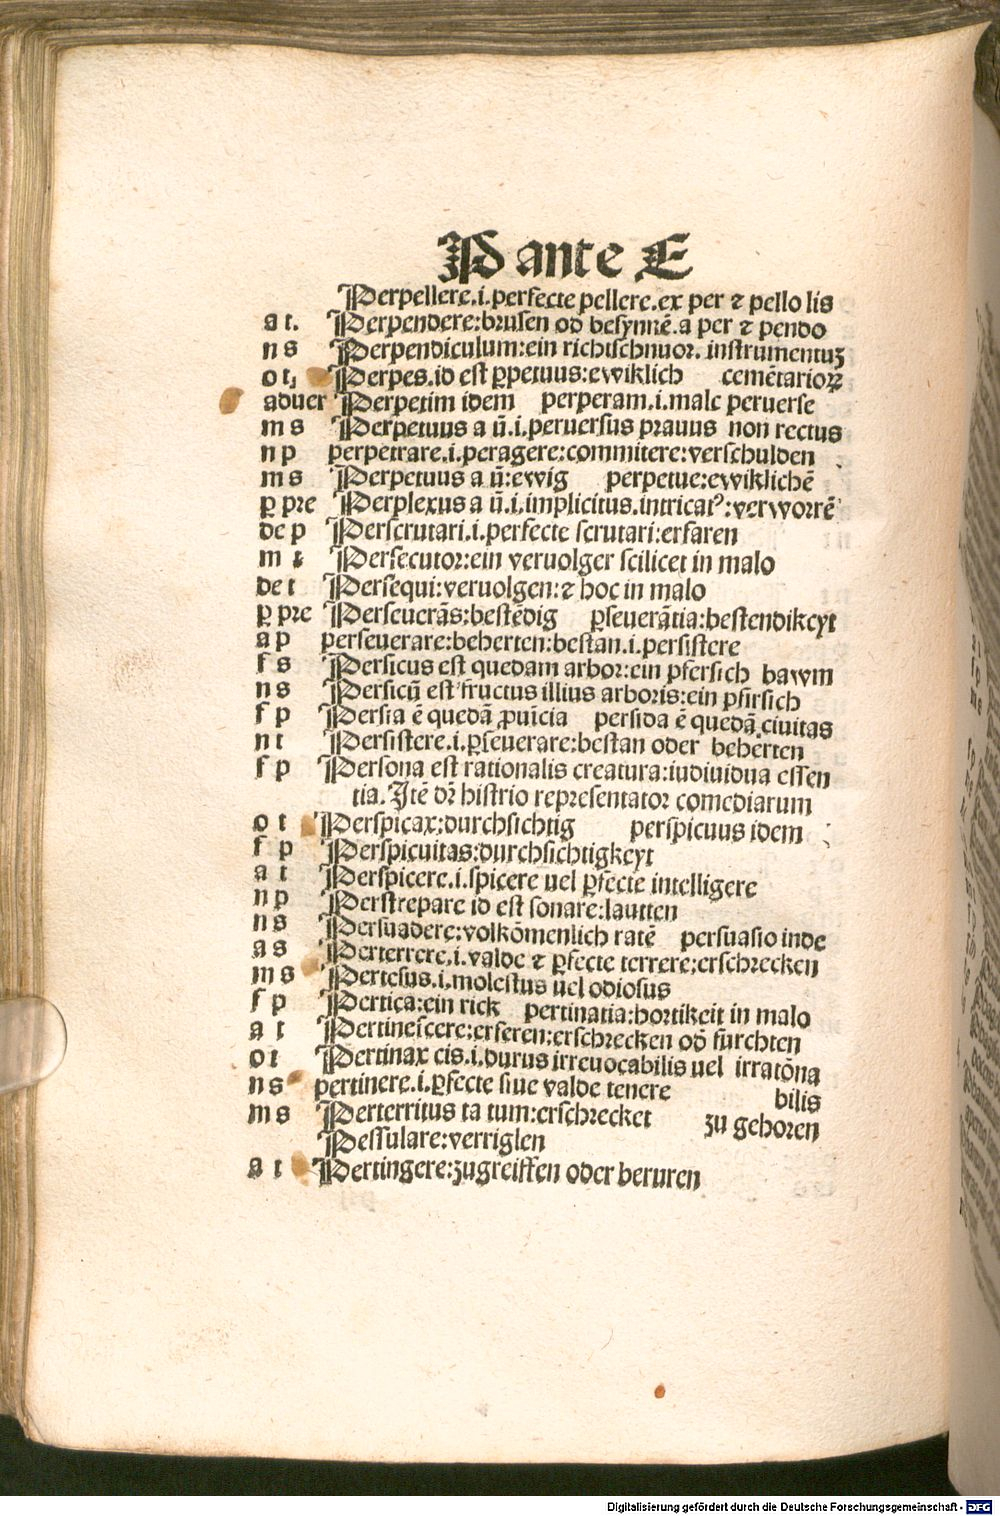 P ante E
Perpellere.i.perfecte pellere.ex per ⁊ pello lis
a t. Perpendere:brusen od besynnē.a per ⁊ pendo
n s Perpendiculum:ein richtschnuor. instrumentuʒ
o t, Perpes.id est ꝑpetuus:ewiklich cemētarioꝝ
aduer Perpetim idem perperam.i.male peruerse
m s Perpetuus a ū.i.peruersus prauus non rectus
n p perpetrare.i.peragere:commitere:verschulden
m s Perpetuus a ū:ewig perpetue:ewiklichē
ꝑ pre Perplexus a ū.i.implicitus.intricatꝰ:verworrē
de p Perscrutari.i.perfecte scrutari:erfaren
m t Persecutor:ein veruolger scilicet in malo
de t Persequi:veruolgen:⁊ hoc in malo
ꝑ pre Perseuerās:bestēdig ꝑseuerātia:bestendikeyt
a p perseuerare:beherten:bestan.i.persistere
f s Persicus est quedam arbor:ein pfersich bawm
n s Persicū est fructus illius arboris:ein pfirsich
f p Persia ē quedā ꝓuīcia persida ē quedā ciuitas
n t Persistere.i.ꝑseuerare:bestan oder beherten
f p Persona est rationalis creatura:iudiuidua essen
tia.Itē dr̄ histrio representator comediarum
o t Perspicax:durchsichtig perspicuus idem
f p Perspicuitas:durchsichtigkeyt
a t Perspicere.i.spicere uel ꝑfecte intelligere
n p Perstrepare id est sonare:lautten
n s Persuadere:volkōmenlich ratē persuasio inde
a s Perterrere.i.valde ⁊ ꝑfecte terrere:erschrecken
m s Pertesus.i.molestus uel odiosus
f p Pertica:ein rick pertinatia:hortikeit in malo
a t Pertinescere:erferen:erschrecken od̄ fürchten
o t Pertinax cis.i.durus irreuocabilis uel irratōna
n s pertinere.i.ꝑfecte siue valde tenere bilis
m s Perterritus ta tum:erschrecket zu gehoren
Pessulare:verriglen
a t Pertingere:zugreiffen oder beruren
Digitalisierung gefördert durch die Deutsche Forschungsgemeinschaft - DFG